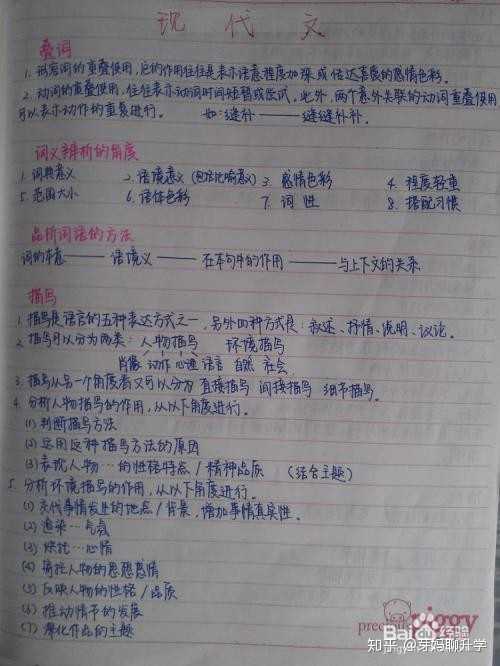 现代文
叠词
1. 形容词的重叠使用,它的作用往往是表示语意程度加深或传达喜爱的感情色彩。
2. 动词的重叠使用,往往表示动词时间短暂或尝试。此外,两个意外关联的动词重叠使用
可以表示动作的重复进行。 如:缝补——缝缝补补。
词义辨析的角度
1. 词典意义 2. 语境意义(包括比喻意义) 3. 感情色彩 4. 程度轻重
5. 范围大小 6. 语体色彩 7. 词性 8. 搭配习惯
品析词语的方法
词的本意——语境义——在本句中的作用——与上下文的关系
描写
1. 描写是语言的五种表达方式之一,另外四种方式是:叙述、抒情、说明、议论。
2. 描写可以分为两类:人物描写 环境描写
肖像 动作 心理 语言 自然 社会
3. 描写从另一个角度看又可以分为 直接描写 间接描写 细节描写。
4. 分析人物描写的作用,从以下角度进行。
(1) 判断描写方法
(2) 运用这种描写方法的原因
(3) 表现人物…的性格特点/精神品质 (结合主题)
5. 分析环境描写的作用,从以下角度进行。
(1) 交代事情发生的地点/背景,增加事情真实性。
(2) 渲染…气氛
(3) 烘托…心情
(4) 寄托人物的思想感情
(5) 反映人物的性格/品质
(6) 推动情节的发展
(7) 深化作品的主题
piggy
Baidu 经验
知乎 @芽妈聊升学